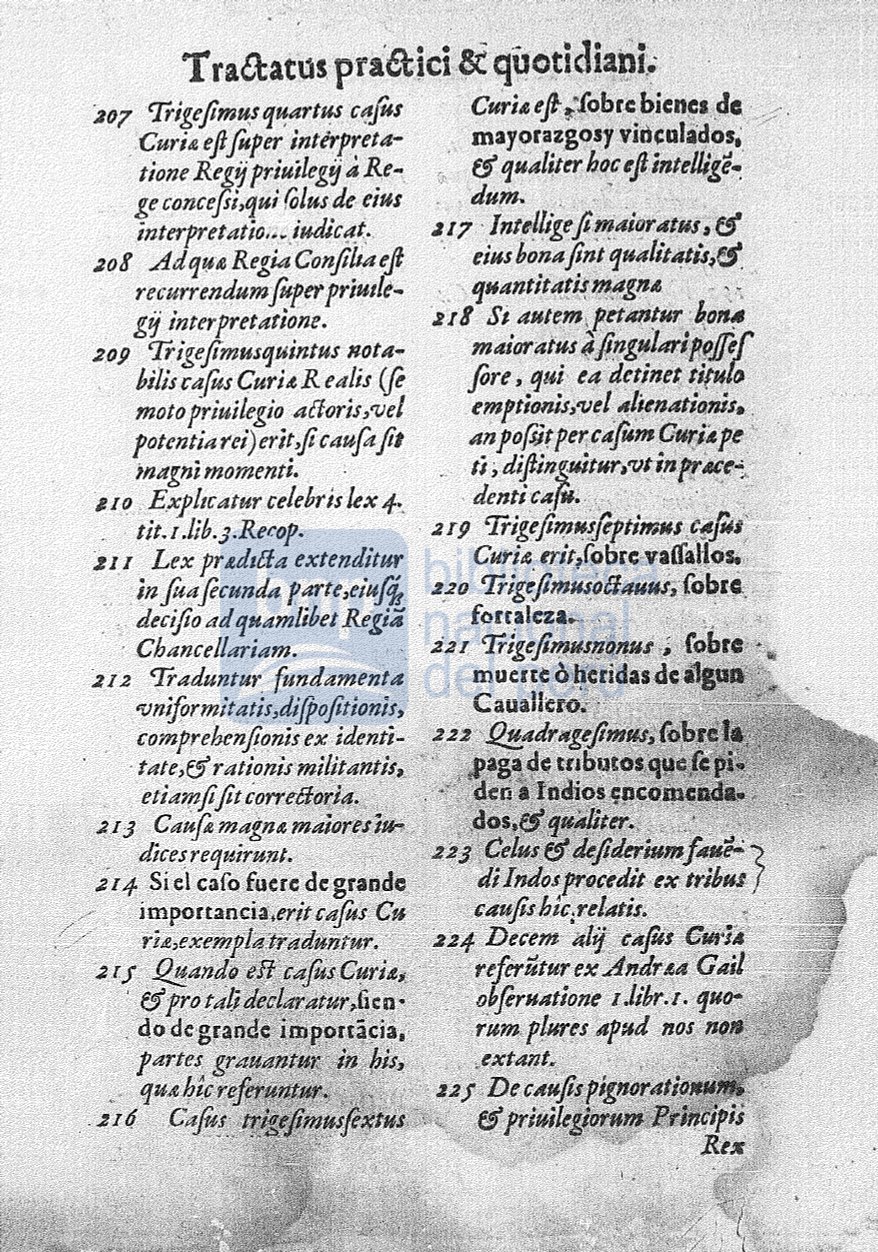 Tractatus practici & quotidiani.
207 Trigesimus quartus casus
Curiæ est super interpreta-
tione Regij priuilegij à Re-
ge concessi, qui solus de eius
interpretatio... iudicat.
208 Ad quæ Regia Consilia est
recurrendum super priuile-
gij interpretatione.
209 Trigesimusquintus nota-
bilis casus Curiæ Realis (se
moto priuilegio actoris, vel
potentia rei) erit, si causa sit
magni momenti.
210 Explicatur celebris lex 4.
tit. 1. lib. 3. Recop.
211 Lex prædicta extenditur
in sua secunda parte, eiusq́;
decisio ad quamlibet Regiā
Chancellariam.
212 Traduntur fundamenta
vniformitatis, dispositionis,
comprehensionis ex identi-
tate, & rationis militantis,
etiamsi sit correctoria.
213 Causæ magnæ maiores iu-
dices requirunt.
214 Si el caso fuere de grande
importancia, erit casus Cu
riæ, exempla traduntur.
215 Quando est casus Curiæ,
& pro tali declaratur, sien-
do de grande importācia,
partes grauantur in his,
quæ hîc referuntur.
216 Casus trigesimussextus
Curiæ est, sobre bienes de
mayorazgos y vinculados,
& qualiter hoc est intelligē-
dum.
217 Intellige si maioratus, &
eius bona sint qualitatis, &
quantitatis magnæ
218 Si autem petantur bona
maioratus à singulari posses
sore, qui ea detinet titulo
emptionis, vel alienationis,
an possit per casum Curiæ pe
ti, distinguitur, vt in præce-
denti casu.
219 Trigesimusseptimus casus
Curiæ erit, sobre vassallos.
220 Trigesimusoctauus, sobre
fortaleza.
221 Trigesimusnonus, sobre
muerte ò heridas de algun
Cauallero.
222 Quadragesimus, sobre la
paga de tributos que se pi-
den a Indios encomenda-
dos, & qualiter.
223 Celus & desiderium fauē-
di Indos procedit ex tribus
causis hîc, relatis.
224 Decem alij casus Curiæ
referūtur ex Andræa Gail
obseruatione 1. libr. 1. quo-
rum plures apud nos non
extant.
225 De causis pignorationum,
& priuilegiorum Principis
Rex
biblioteca
nacional
del perú
bnp